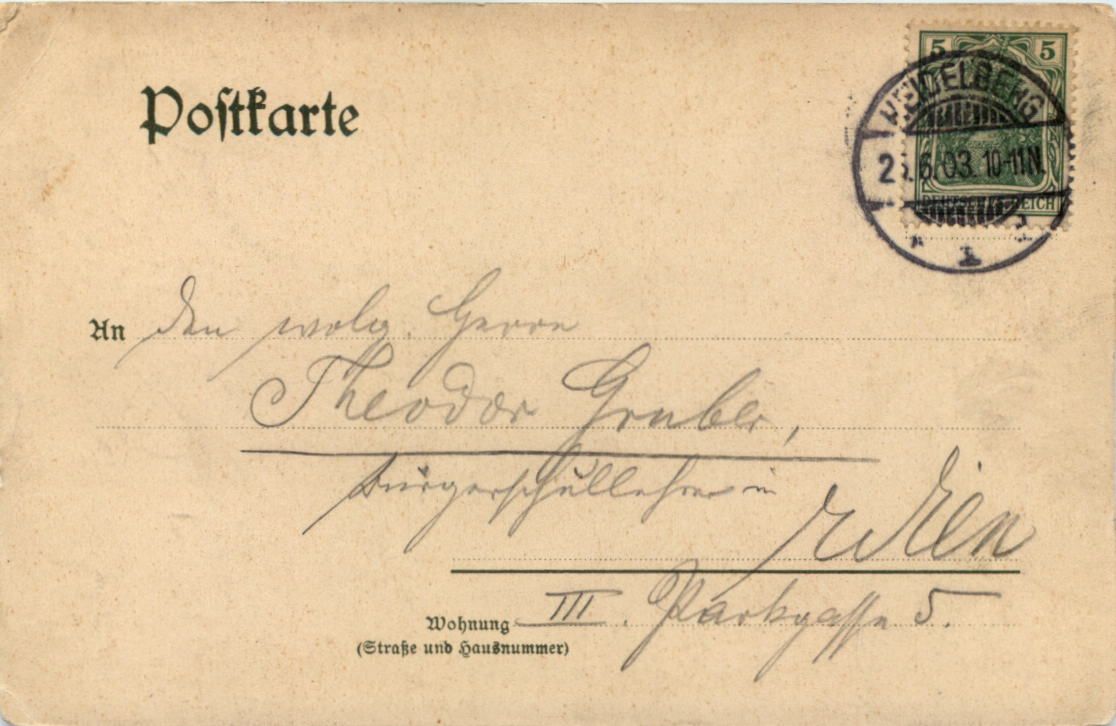 Postkarte
5 5
HEIDELBERG
25.6.03. 10-11 N.
DEUTSCHES REICH
1
An den wolg. Herrn
Theodor Gruber,
Bürgerschullehrer in
Wien
Wohnung III. Parkgasse 5.
(Straße und Hausnummer)